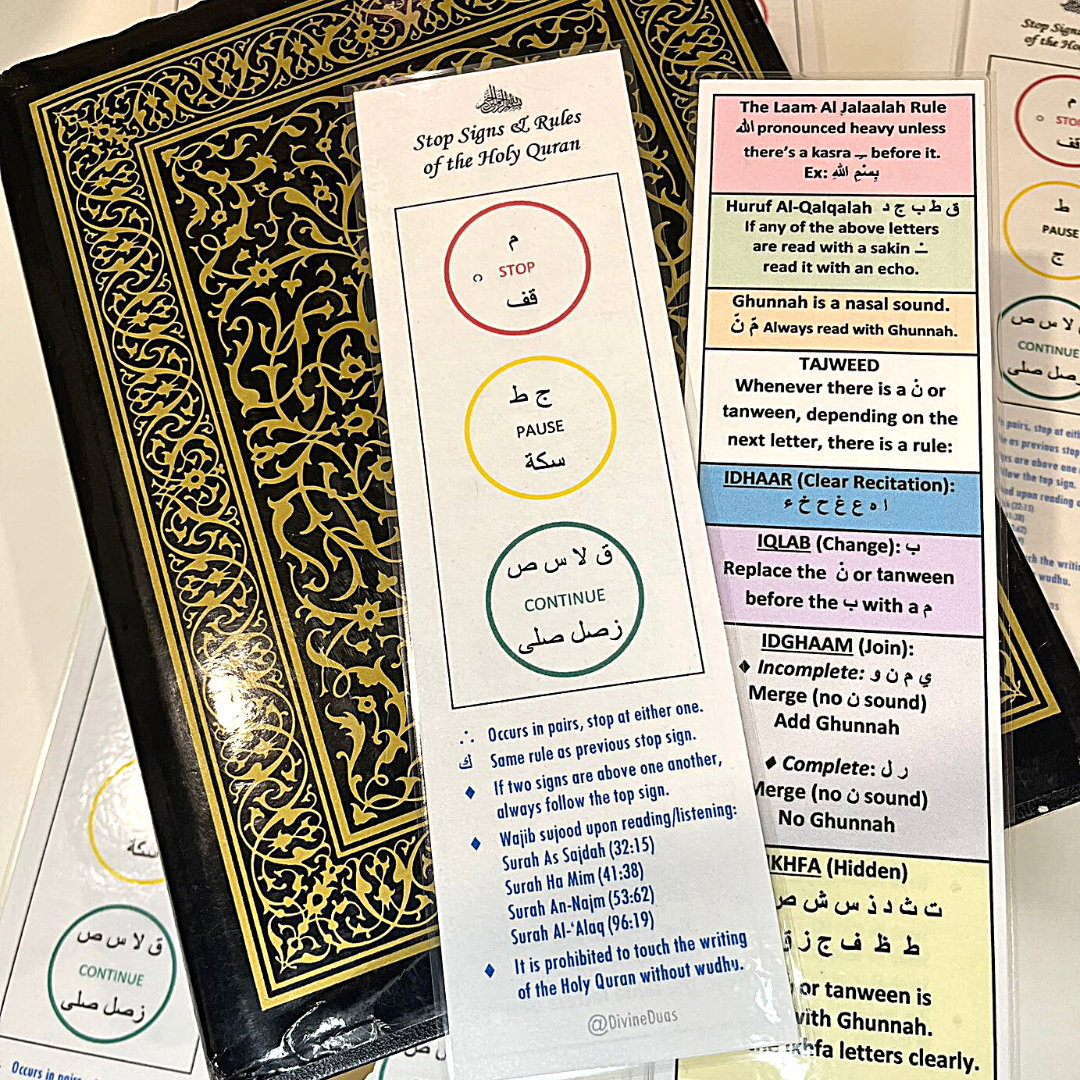 Stop Signs & Rules
of the Holy Quran
م
STOP
قف
ج ط
PAUSE
سكة
ق لا س ص
CONTINUE
زصل صلى
∴ Occurs in pairs, stop at either one.
ك Same rule as previous stop sign.
♦ If two signs are above one another,
always follow the top sign.
♦ Wajib sujood upon reading/listening:
Surah As Sajdah (32:15)
Surah Ha Mim (41:38)
Surah An-Najm (53:62)
Surah Al-'Alaq (96:19)
♦ It is prohibited to touch the writing
of the Holy Quran without wudhu.
@DivineDuas
The Laam Al Jalaalah Rule
الله pronounced heavy unless
there's a kasra ـِ before it.
Ex: بِسْمِ اللهِ
Huruf Al-Qalqalah ق ط ب ج د
If any of the above letters
are read with a sakin ـْ
read it with an echo.
Ghunnah is a nasal sound.
نّ مّ Always read with Ghunnah.
TAJWEED
Whenever there is a نْ or
tanween, depending on the
next letter, there is a rule:
IDHAAR (Clear Recitation):
ا ه ع غ ح خ ء
IQLAB (Change): ب
Replace the نْ or tanween
before the ب with a م
IDGHAAM (Join):
♦ Incomplete: ي م ن و
Merge (no ن sound)
Add Ghunnah
♦ Complete: ر ل
Merge (no ن sound)
No Ghunnah
KHFA (Hidden)
ت ث د ذ س ش ص
ط ظ ف ج ز ق
or tanween is
with Ghunnah.
khfa letters clearly.
Stop Signs
of the Ho
م
STO
قف
ط
PAUSE
ج
لا س ص
CONTINUE
صل صلى
pairs, stop at eith
as previous stop
are above one
follow the top sign.
upon reading
wudhu.
سكة
ق لا س ص
CONTINUE
زصل صلى
∴ Occurs in pairs